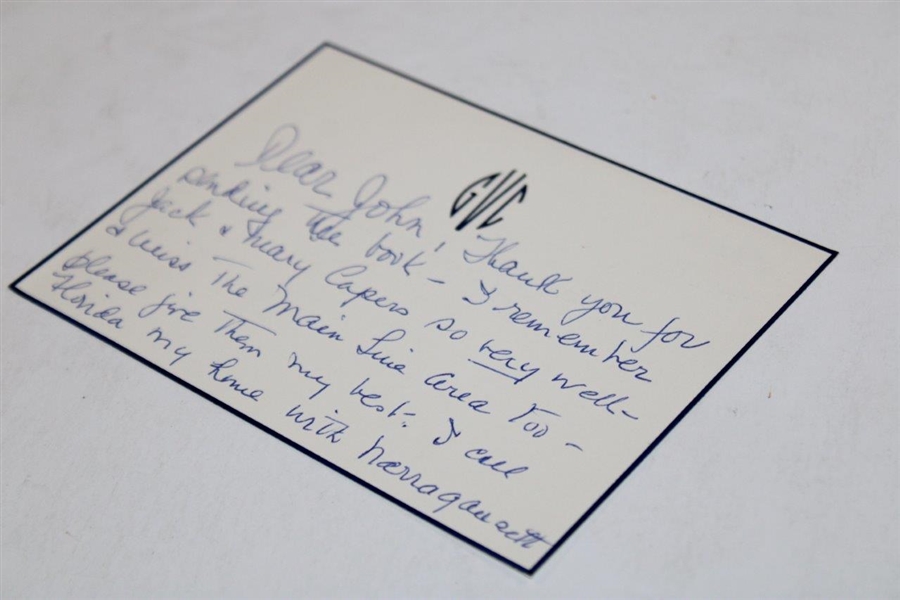 GVC
Dear John, Thank you for
sending the book - I remember
Jack & Mary Capers so very well-
& miss The Main Line area too -
please give Them my best. I call
Florida my home with Narragansett